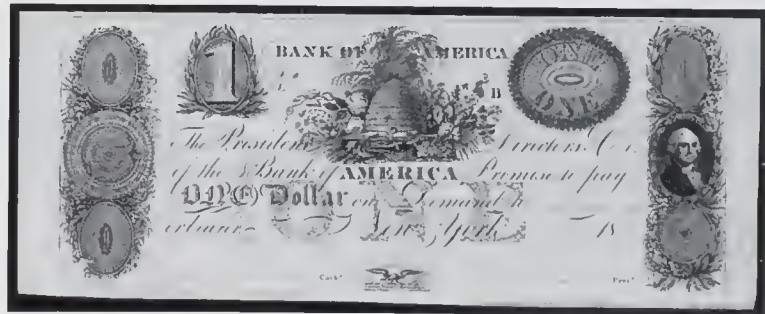 1 BANK OF AMERICA ONE
B ONE
The President Directors & Co.
of the Bank of AMERICA Promise to pay
ONE Dollar on Demand to
or bearer New York 18
Cash.r Pres.t